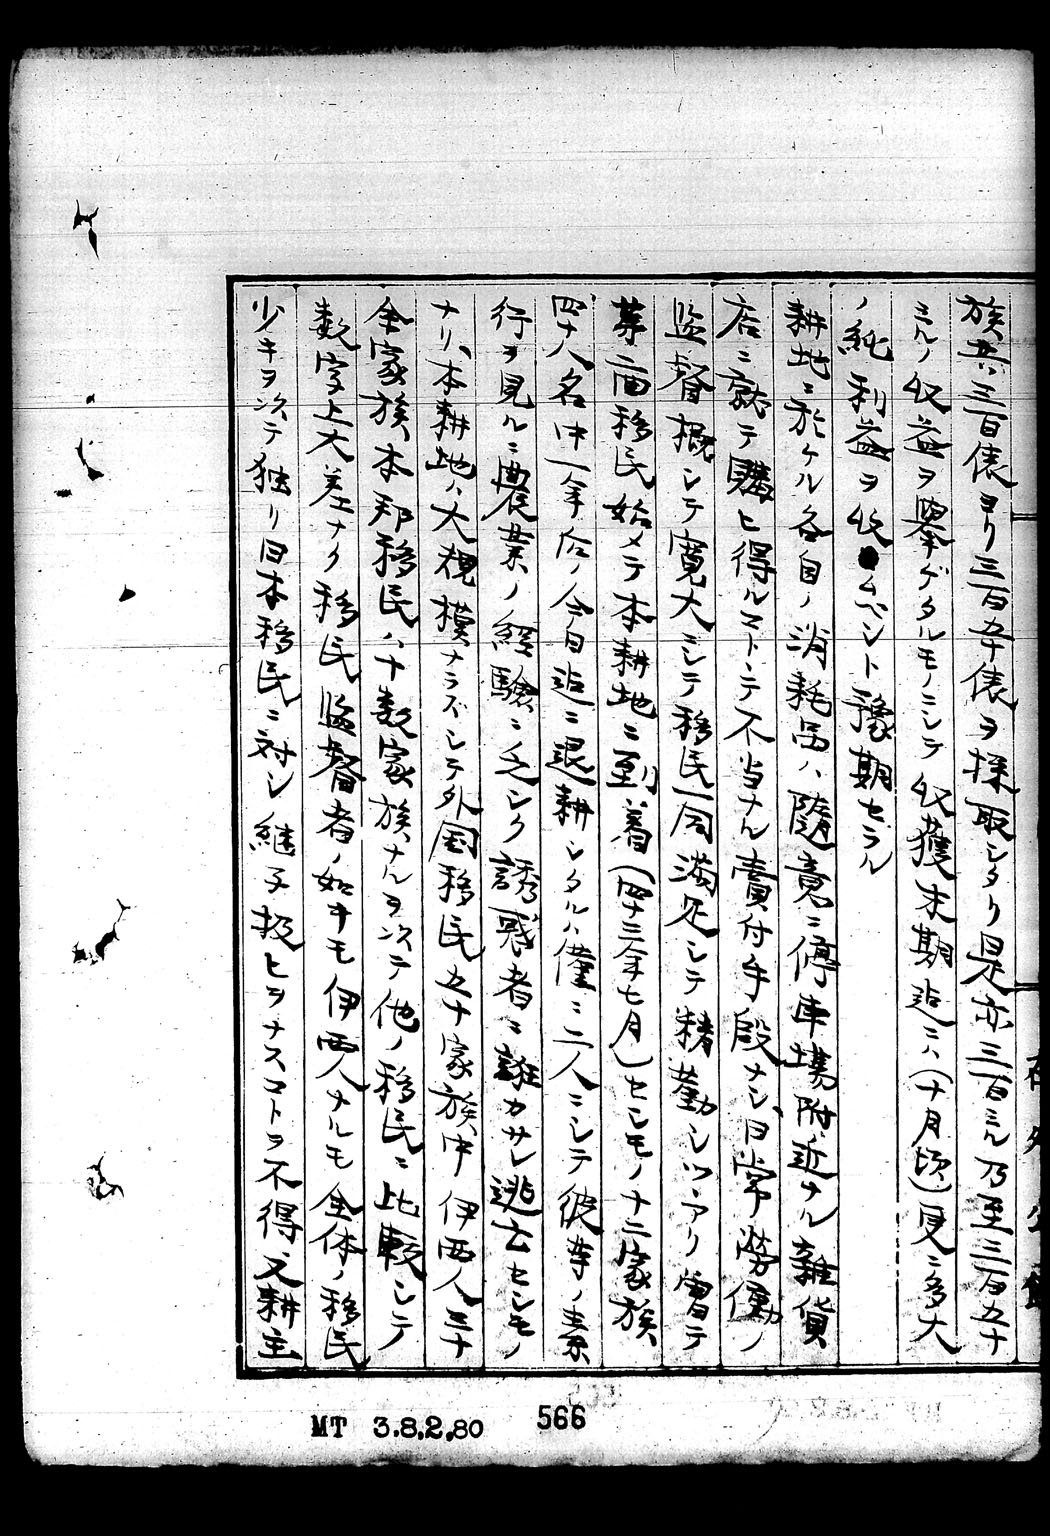 族共ハ三百俵ヨリ三百五十俵ヲ採取シタリ是亦三百ミル乃至三百五十
ミルノ収益ヲ舉ゲタルモノニシテ收獲末期迄ニハ(十月頃)更ニ多大
ノ純利益ヲ収ムベシト豫期セラル
耕地ニ於ケル各自ノ消耗品ハ隨意ニ停車場附近ナル雜貨
店ニ就テ購ヒ得ルコトトテ不当ナル賣付手段ナシ日常労働ノ
監督概シテ寛大ニシテ移民一同満足シテ精勤シツツアリ曽テ
葦甫移民始メテ本耕地ニ到着(四十三年七月)セシモノ十二家族
四十八名中一年后ノ今日迄ニ退耕シタルハ僅ニ二人ニシテ彼等ノ素
行ヲ見ルニ農業ノ經驗ニ乏シク誘惑者ニ誑カサレ逃亡セシモノ
ナリ、本耕地ハ大規模ナラズシテ外国移民五十家族中伊西人三十
余家族、本邦移民ハ十数家族ナルヲ以テ他ノ移民ニ比較シテ
数字上大差ナク移民監督者ノ如キモ伊西人ナルモ全体ノ移民
少キヲ以テ独リ日本移民ニ対シ継子扱ヒヲナスコトヲ不得又耕主
在外公館
MT 3.8.2.80 566